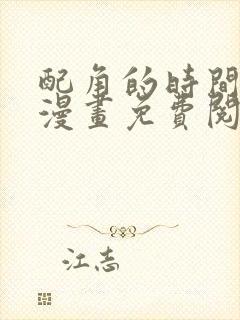 配角的時間
漫畫免費閱
江志